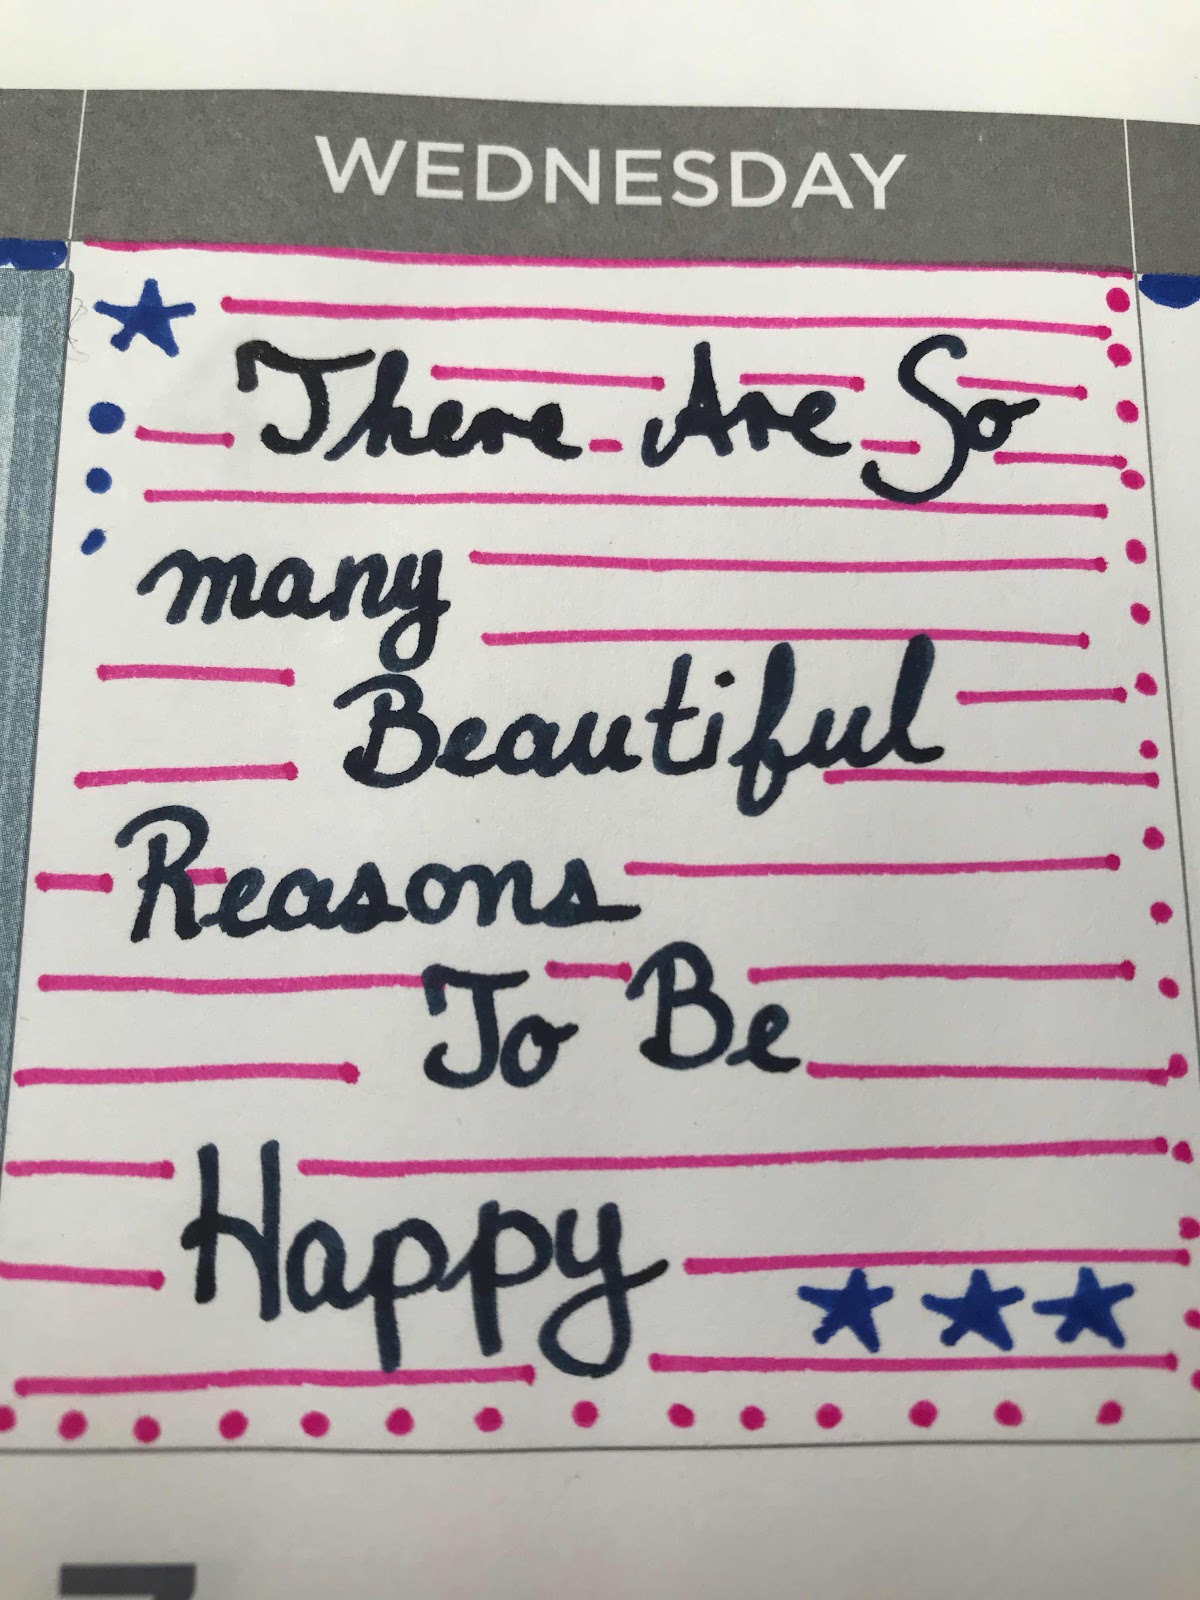 WEDNESDAY
There Are So
many
Beautiful
Reasons
To Be
Happy